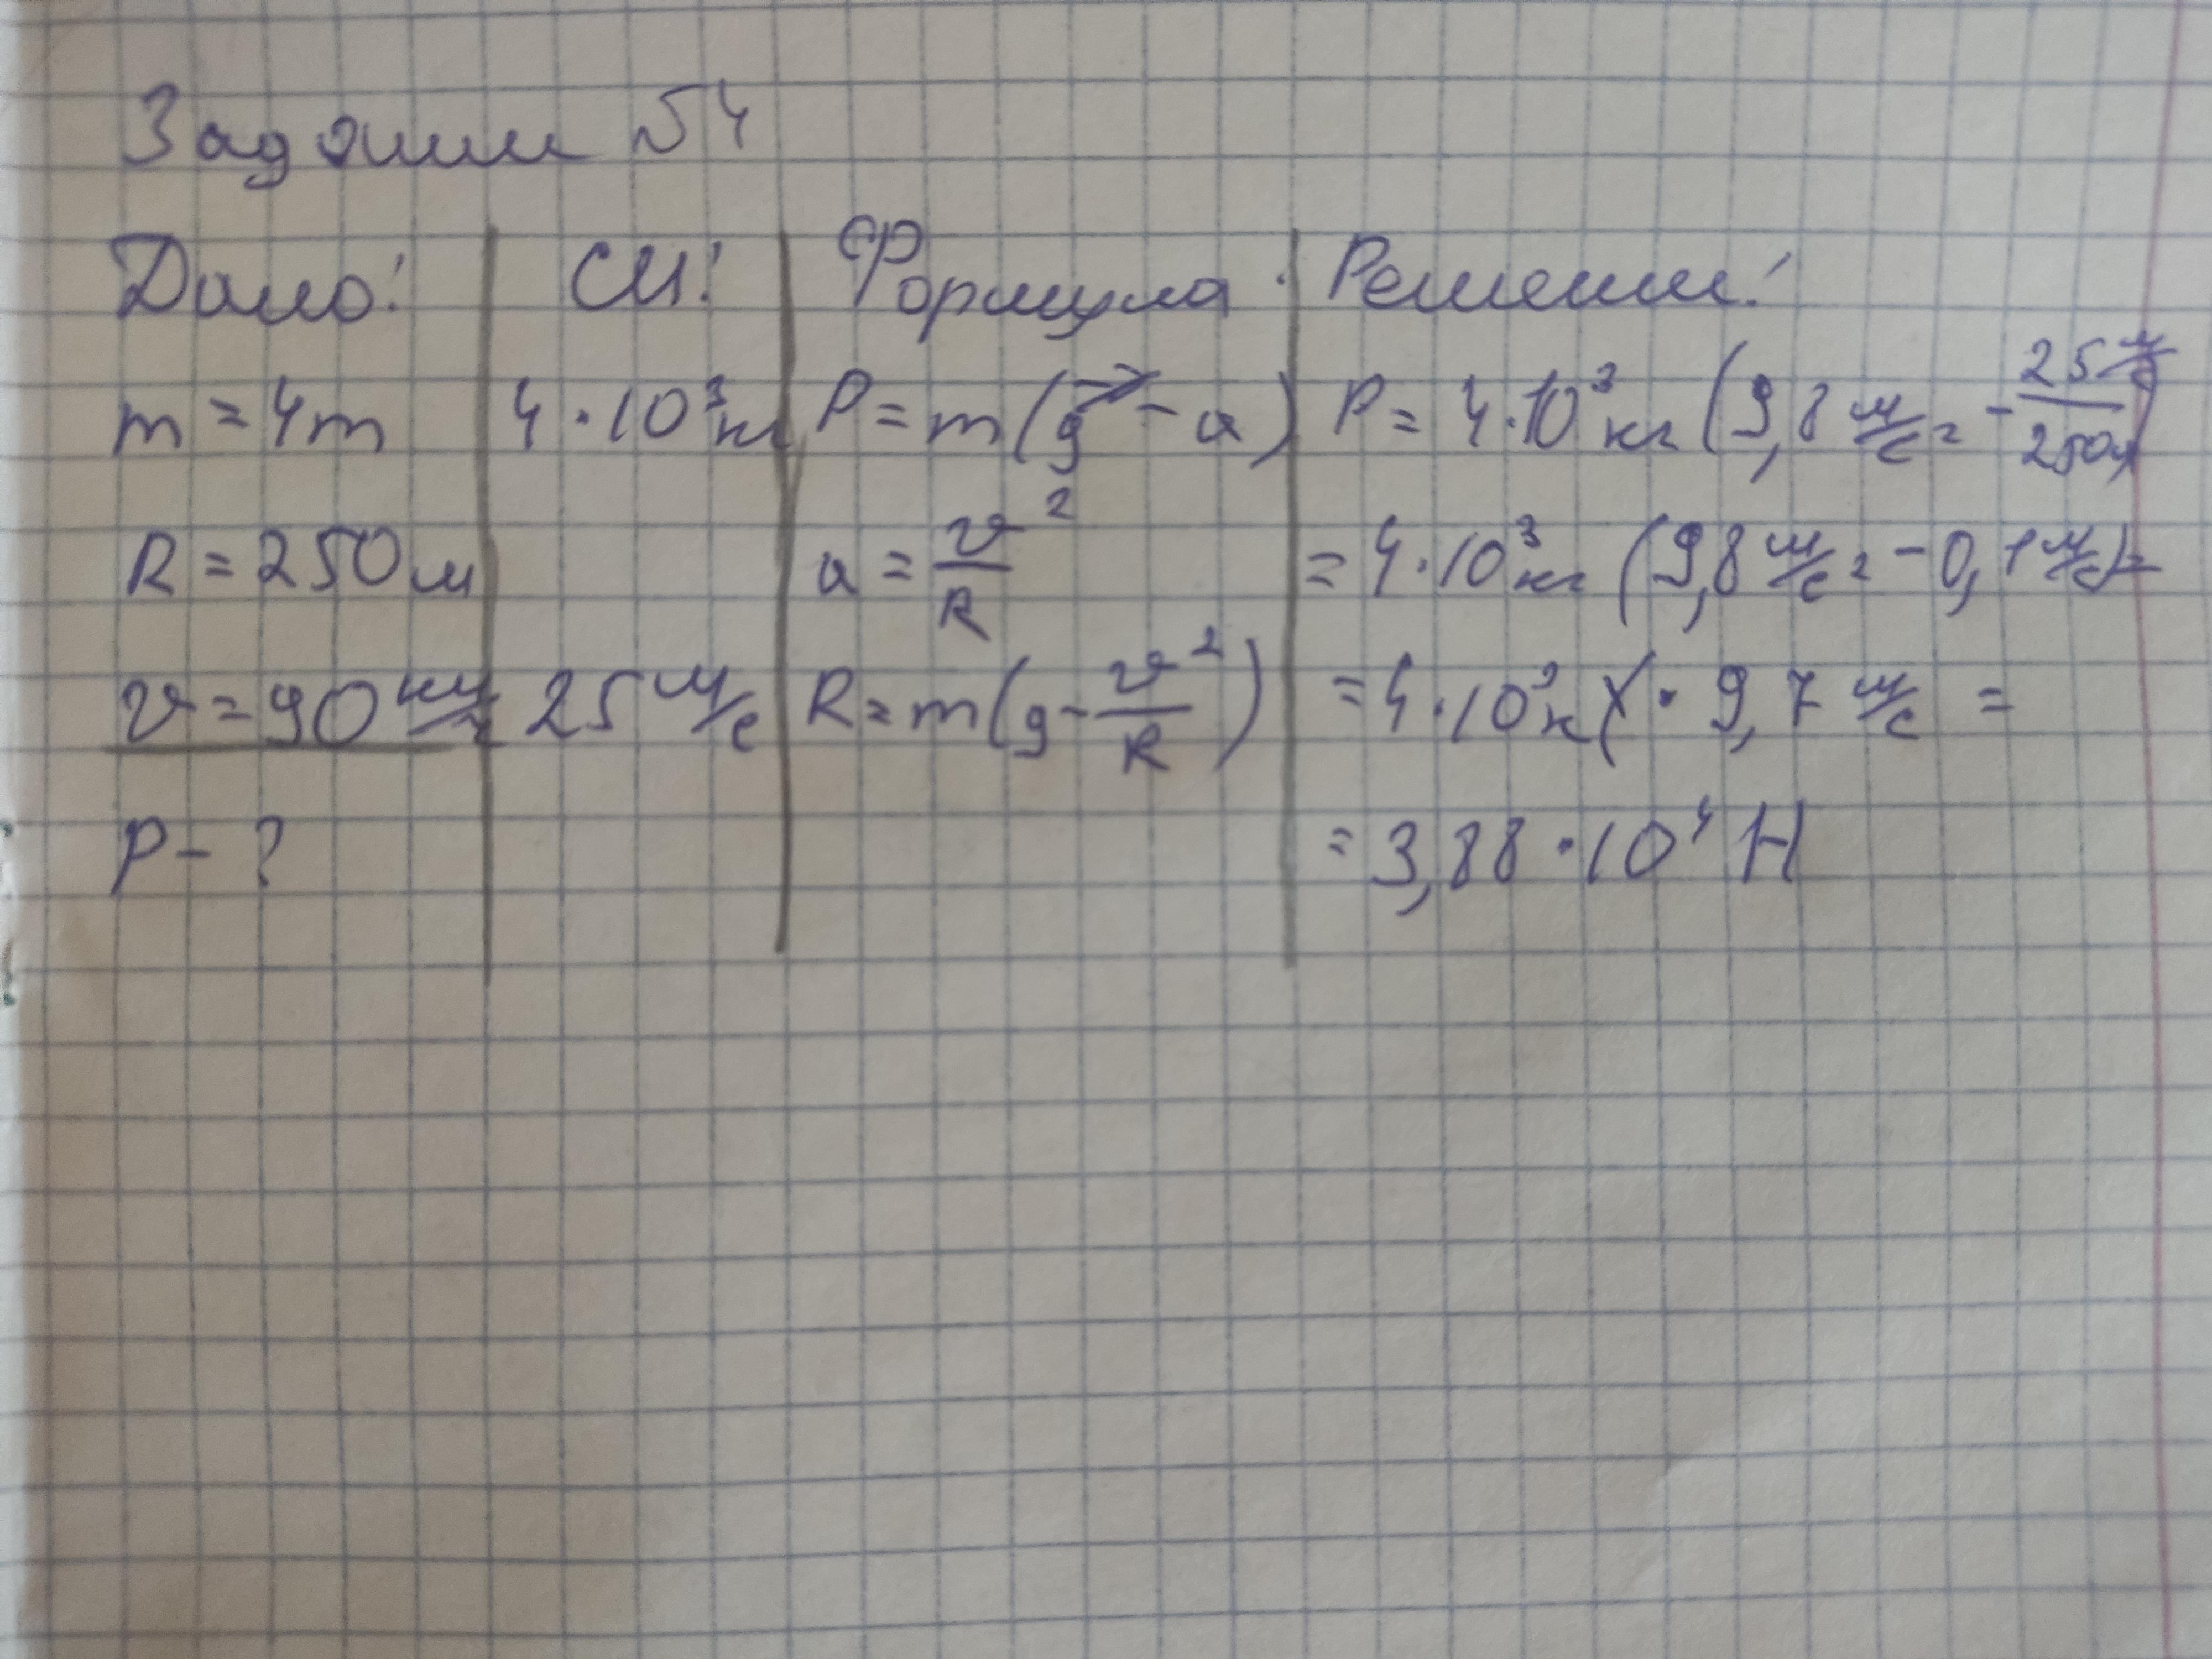 Задание №4
Дано: СИ: Формула: Решение:
m = 4т 4·10³кг P = m(g⃗ - a) P = 4·10³кг (9,8 м/с² - 25 м/с / 250м)
R = 250м a = v²/R = 4·10³кг (9,8 м/с² - 0,1 м/с) =
v = 90 км/ч 25 м/с R = m(g - v²/R) = 4·10³кг · 9,7 м/с =
P - ? = 3,88 · 10⁴ Н